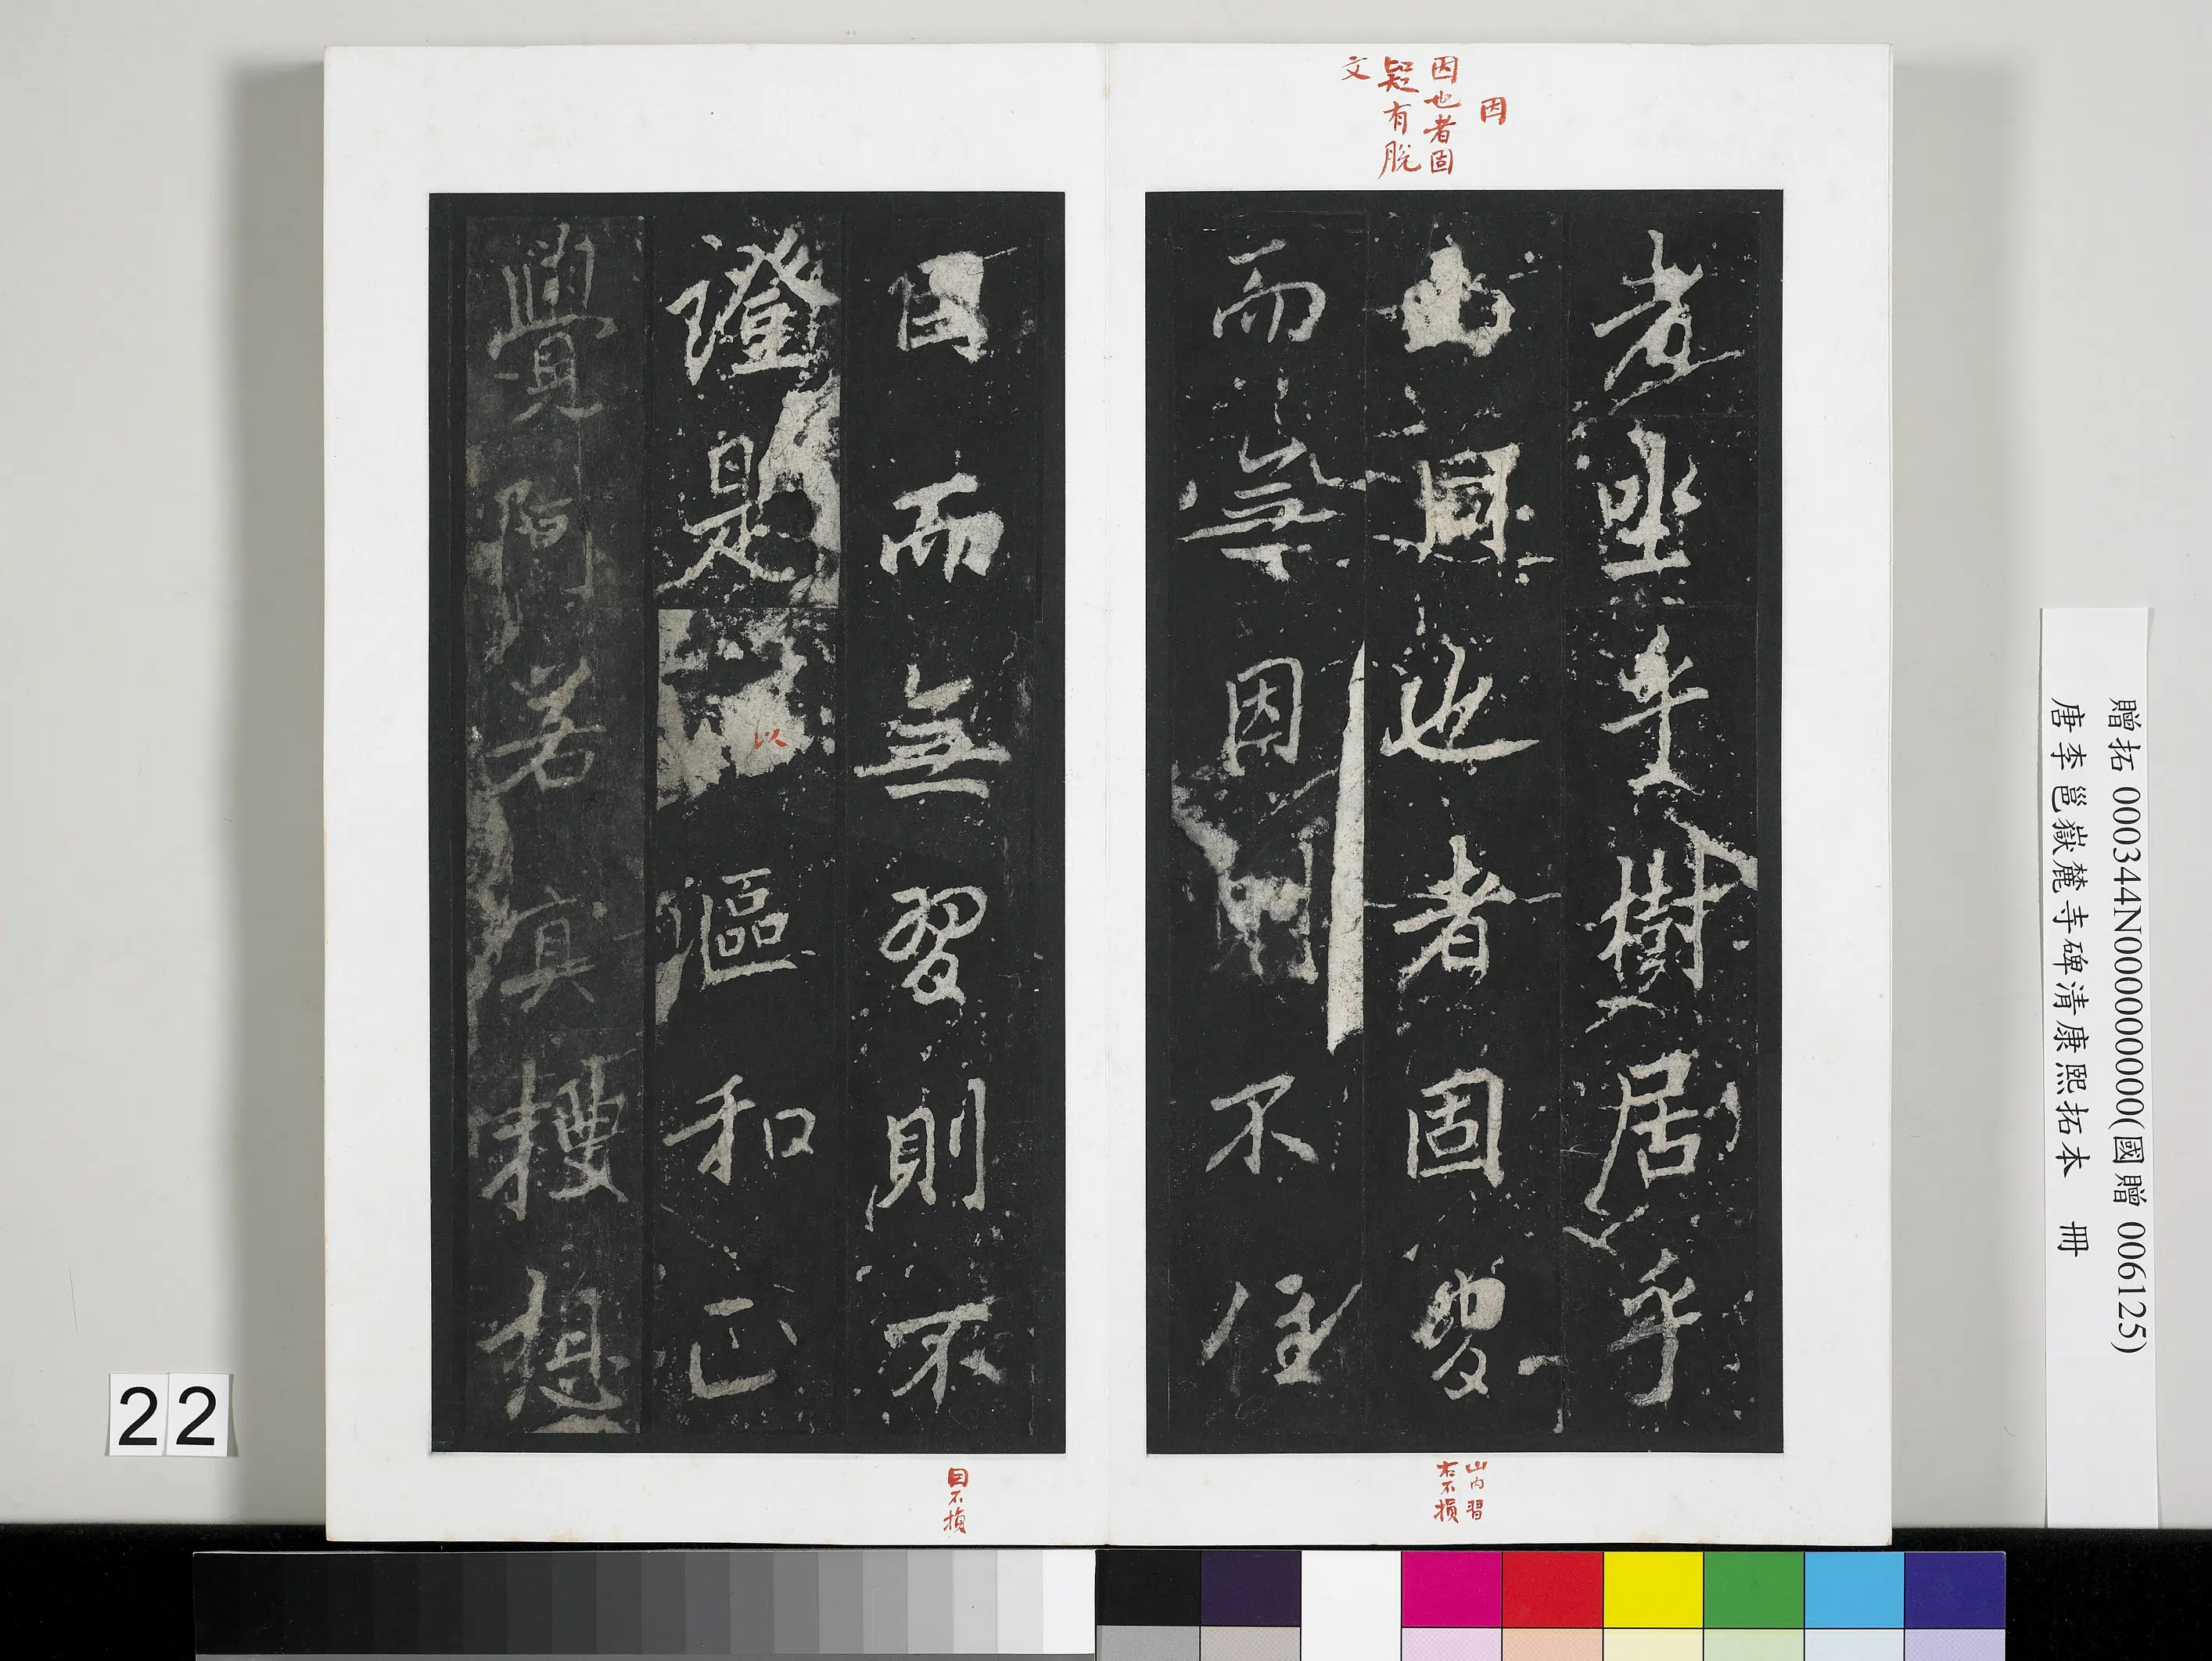 因
因也者固
疑有脫
文
者坐乎樹居乎
山因也者固習
而無因則不住
山内習
右不損
目而無習則不
證是以漚和正
覺阿若真想
目不損
22
贈拓 000344N000000000(國贈 006125)
唐李邕嶽麓寺碑清康熙拓本 冊